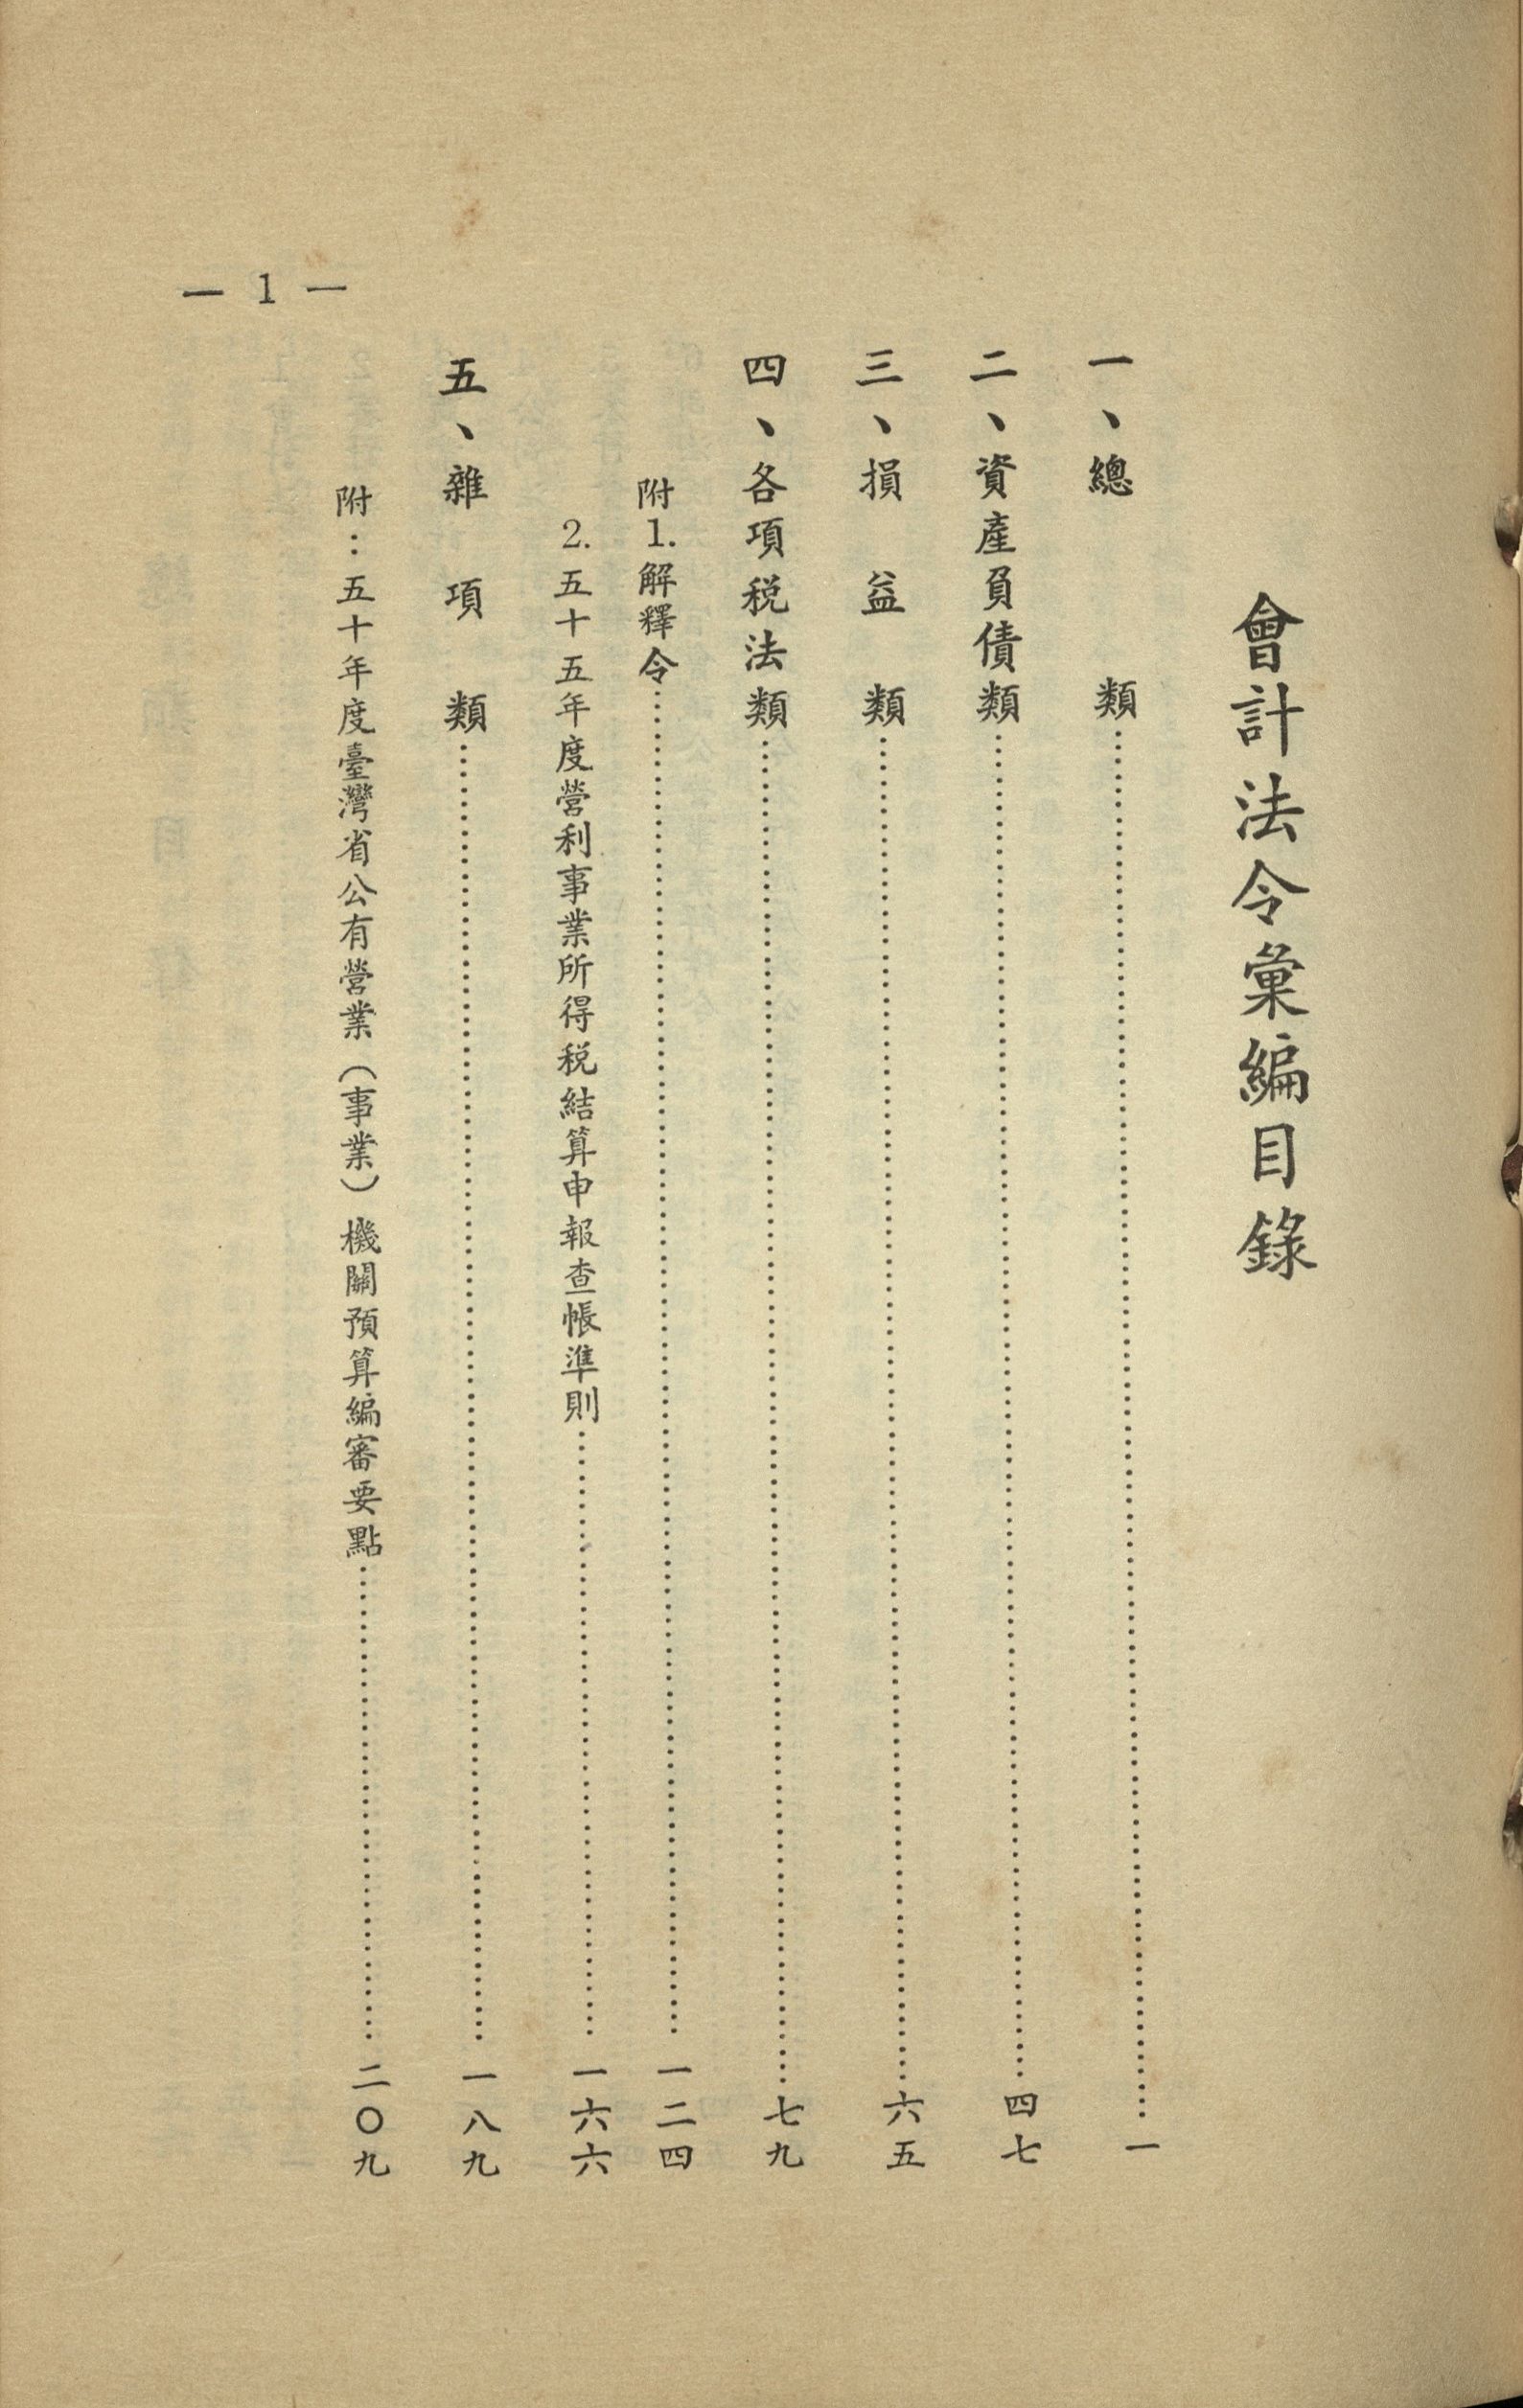 會計法令彙編目錄
一、總類……一
二、資產負債類……四七
三、損益類……六五
四、各項税法類……七九
附1.解釋令……一二四
2.五十五年度營利事業所得税結算申報查帳準則……一六六
五、雜項類……一八九
附：五十年度臺灣省公有營業（事業）機關預算編審要點……二〇九
— 1 —